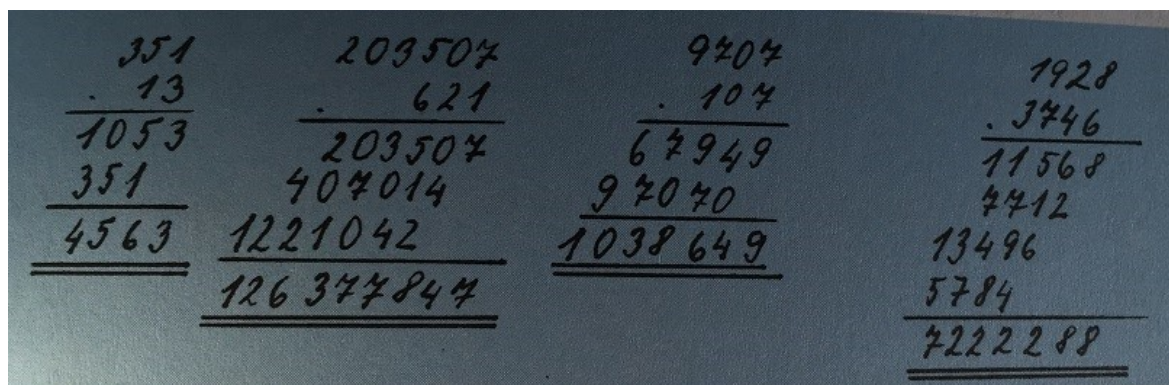 351
. 13
1053
351
4563
203507
. 621
203507
407014
1221042
126377847
9707
. 107
67949
97070
1038649
1928
. 3746
11568
7712
13496
5784
7222288